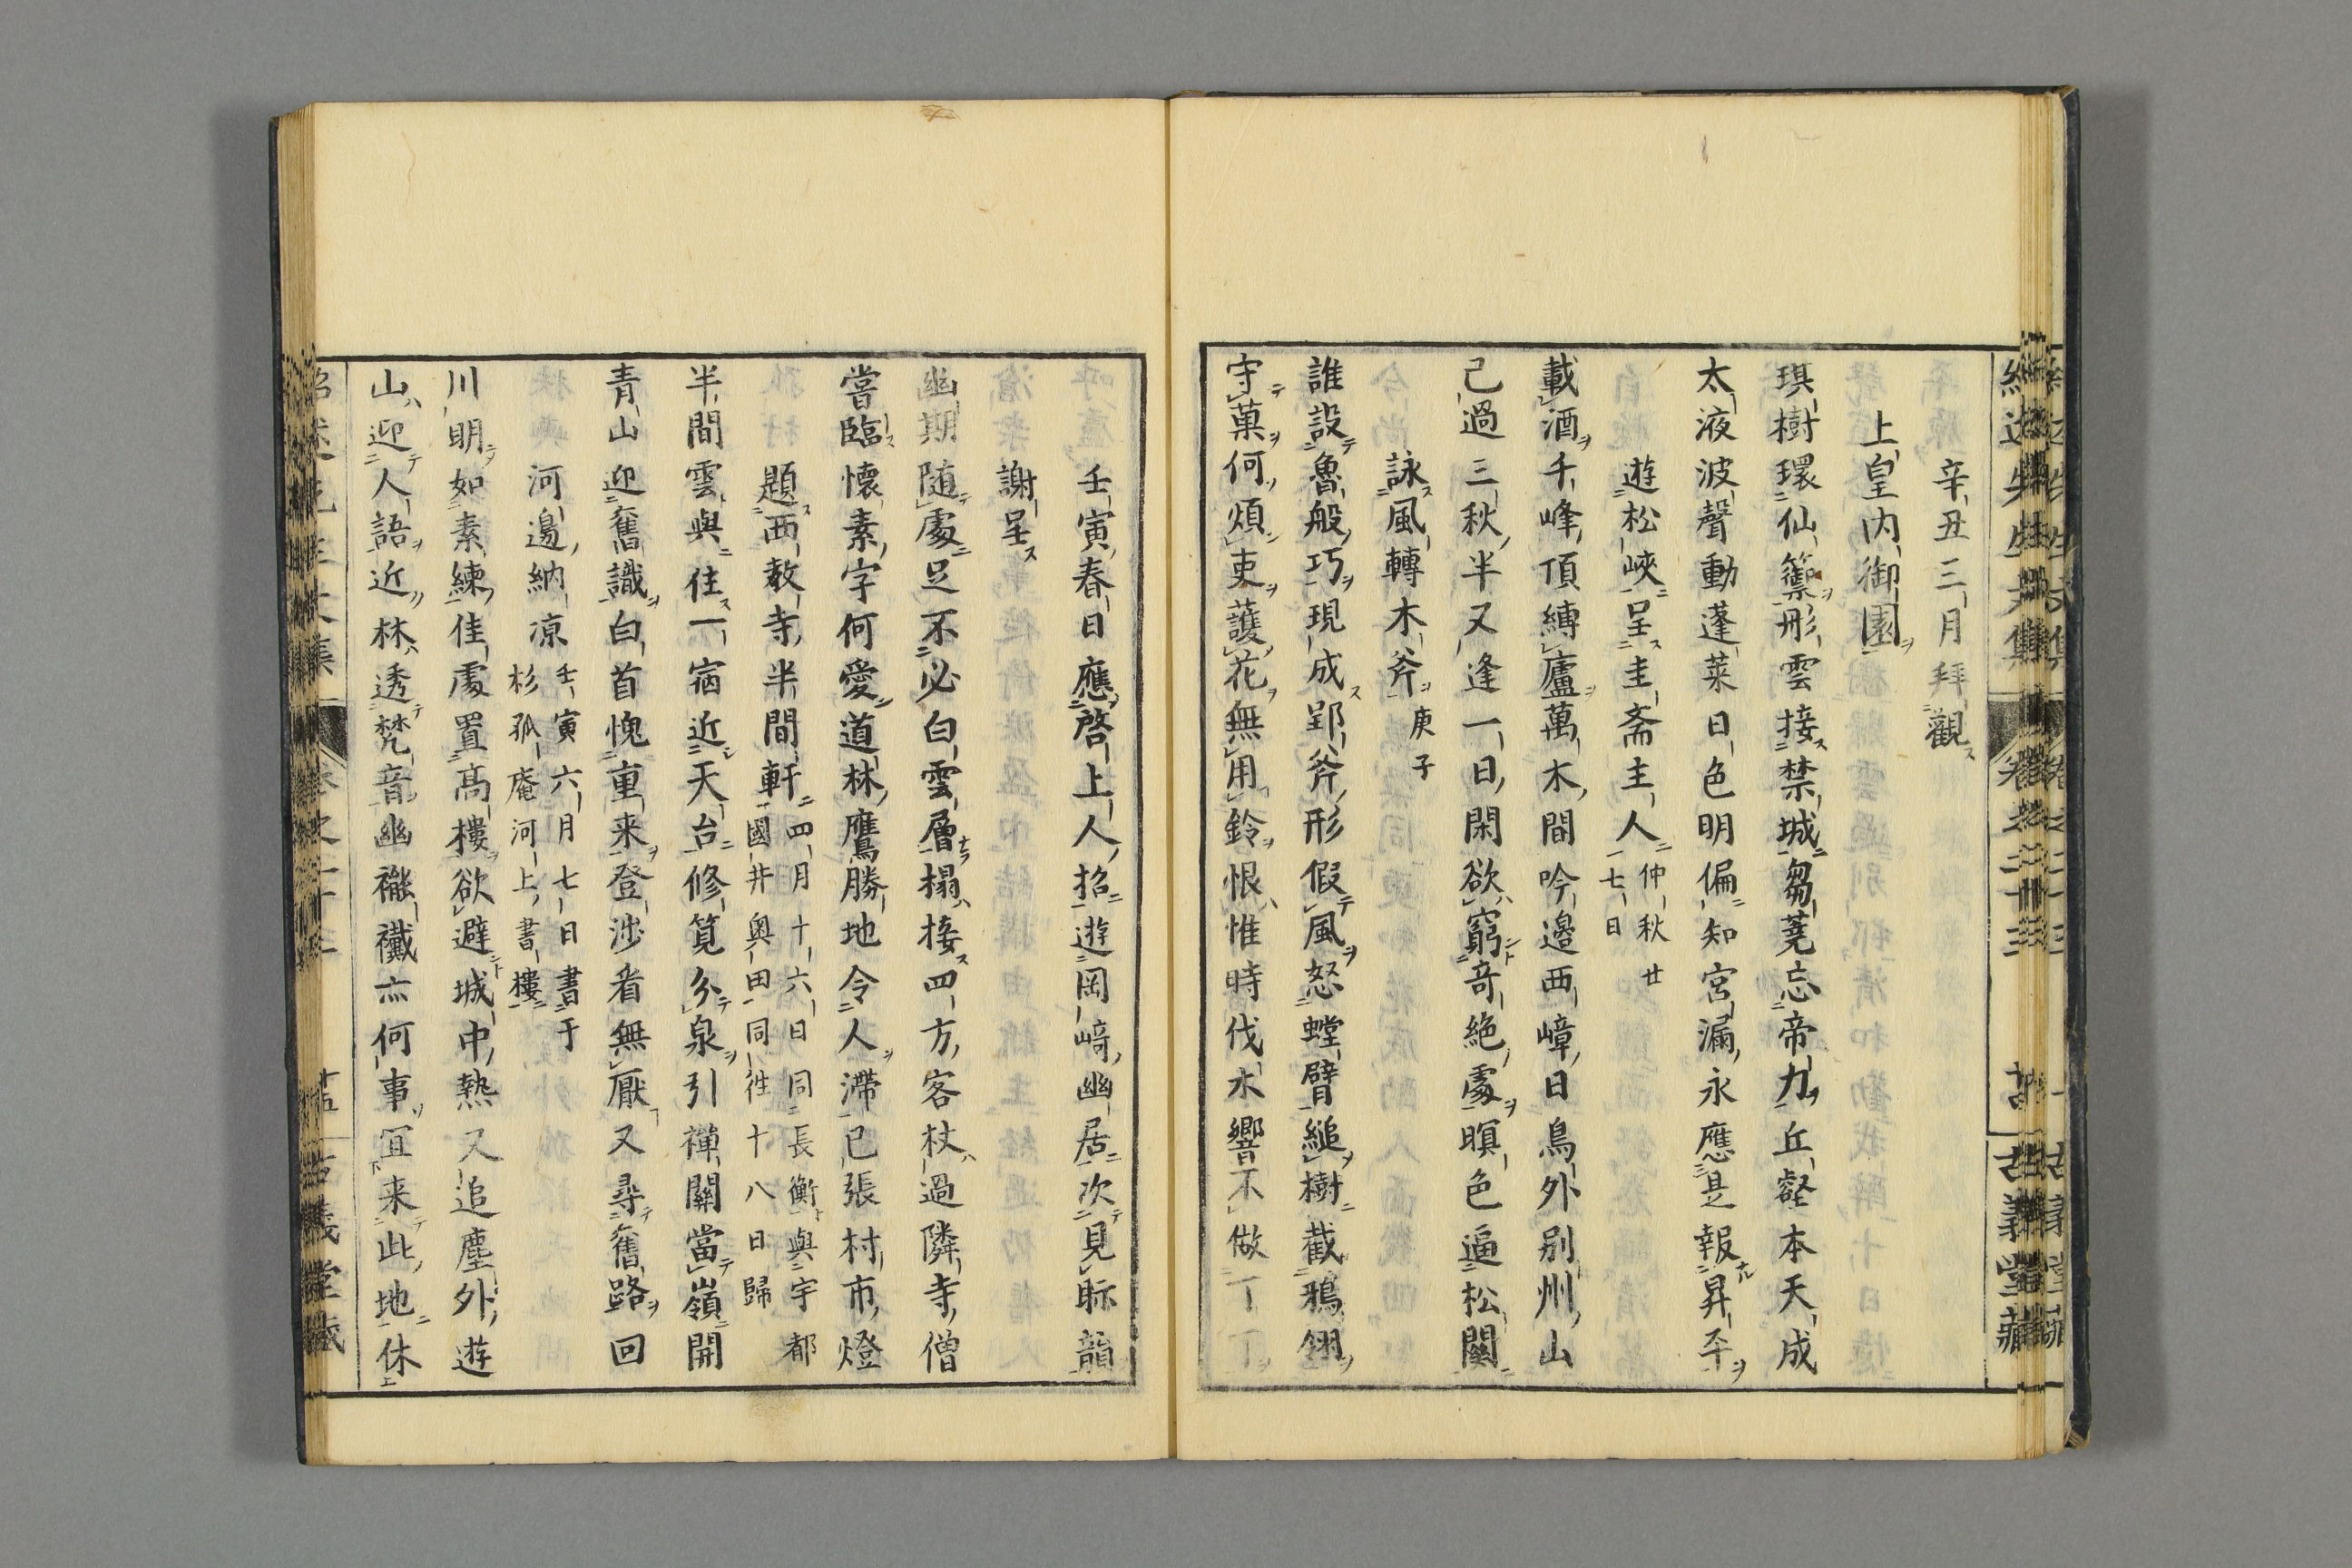 辛丑三月拜觀
上皇内御園
琪樹環仙籞形雲接禁城芻蕘忘帝力丘壑本天成
太液波聲動蓬萊日色明偏知宮漏永應是報昇平
遊松峽呈圭斎主人仲秋廿
七日
載酒千峰頂縛廬萬木間吟邉西嶂日鳥外別州山
已過三秋半又逢一日閑欲窮奇絶處暝色逼松關
詠風轉木斧庚子
誰設魯般巧現成郢斧形假風怒螳臂縋樹截鴉翎
守菓何煩吏護花無用鈴恨惟時伐木響不做丁丁
壬寅春日應啓上人招遊岡﨑幽居次見眎韻
謝呈
幽期随處足不必白雲層榻接四方客杖過隣寺僧
嘗臨懷素字何愛道林鷹勝地令人滯已張村市燈
題西教寺半間軒四月十六日同長衡與宇都
國井奥田同徃十八日歸
半間雲與住一宿近天台修筧分泉引禪關當嶺開
青山迎舊識白首愧重来登涉看無厭又尋舊路回
河邉納凉壬寅六月七日書于
杉孤庵河上書樓
川明如素練佳處置高樓欲避城中熱又追塵外遊
山迎人語近林透梵音幽襶亦何事冝来此地休
古義堂藏